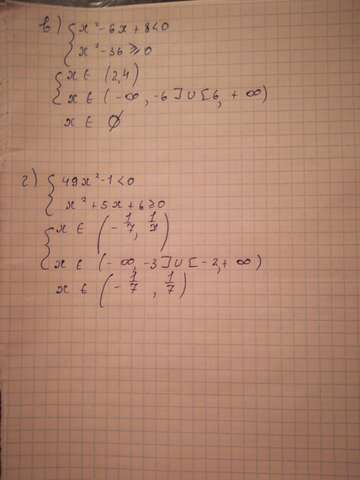 в) { x² - 6x + 8 < 0
x² - 36 ⩾ 0
{ x ∈ (2, 4)
x ∈ (-∞, -6] ∪ [6, +∞)
x ∈ ∅
г) { 49x² - 1 < 0
x² + 5x + 6 ⩾ 0
{ x ∈ (-1/7, 1/7)
x ∈ (-∞, -3] ∪ [-2, +∞)
x ∈ (-1/7, 1/7)